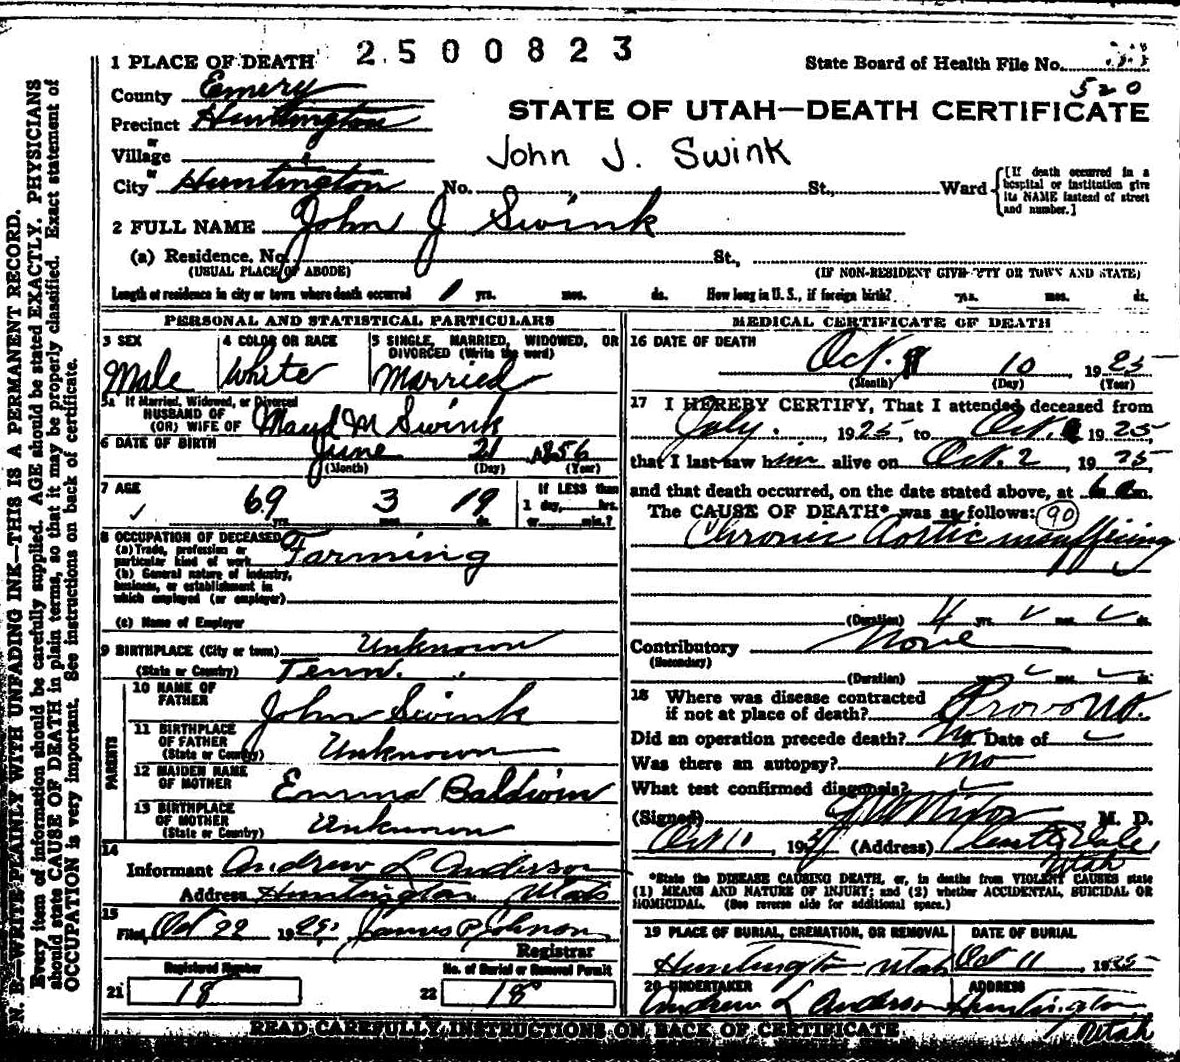 2500823
1 PLACE OF DEATH
State Board of Health File No.
520
County Emery
STATE OF UTAH—DEATH CERTIFICATE
Precinct Huntington
or
Village
John J. Swink
or
City Huntington No. St., Ward
[If death occurred in a hospital or institution give its NAME instead of street and number.]
2 FULL NAME John J Swink
(a) Residence. No. St.,
(USUAL PLACE OF ABODE) (IF NON-RESIDENT GIVE CITY OR TOWN AND STATE)
Length of residence in city or town where death occurred 1 yrs. mos. ds. How long in U. S., if foreign birth? yrs. mos. ds.
PERSONAL AND STATISTICAL PARTICULARS
3 SEX
Male
4 COLOR OR RACE
White
5 SINGLE, MARRIED, WIDOWED, OR DIVORCED (Write the word)
Married
5a If Married, Widowed, or Divorced
HUSBAND OF
(OR) WIFE OF Maud M Swink
6 DATE OF BIRTH June 21 1856
(Month) (Day) (Year)
7 AGE 69 yrs. 3 mos. 19 ds.
If LESS than
1 day, hrs.
or min.?
8 OCCUPATION OF DECEASED
(a) Trade, profession or particular kind of work Farming
(b) General nature of industry, business, or establishment in which employed (or employer)
(c) Name of Employer
9 BIRTHPLACE (City or town) Unknown
(State or Country) Tenn.
PARENTS
10 NAME OF FATHER John Swink
11 BIRTHPLACE OF FATHER (State or Country) Unknown
12 MAIDEN NAME OF MOTHER Emma Baldwin
13 BIRTHPLACE OF MOTHER (State or Country) Unknown
14
Informant Andrew L Anderson
Address Huntington Utah
15
Filed Oct 22 1925. James P Johnson
Registrar
Registered Number
21 18
No. of Burial or Removal Permit
22 18
MEDICAL CERTIFICATE OF DEATH
16 DATE OF DEATH
Oct. 10 1925
(Month) (Day) (Year)
17 I HEREBY CERTIFY, That I attended deceased from
July. 1925, to Oct. 1925,
that I last saw him alive on Oct. 2, 1925,
and that death occurred, on the date stated above, at 6 a m.
The CAUSE OF DEATH* was as follows: 90
Chronic Aortic insufficincy
(Duration) 4 yrs. mos. ds.
Contributory None
(Secondary)
(Duration) yrs. mos. ds.
18 Where was disease contracted
if not at place of death? Provo Ut.
Did an operation precede death? No Date of
Was there an autopsy? No
What test confirmed diagnosis?
(Signed) M. D.
Oct 11, 19 (Address) Castle Dale,
Utah
*State the DISEASE CAUSING DEATH, or, in deaths from VIOLENT CAUSES state
(1) MEANS AND NATURE OF INJURY; and (2) whether ACCIDENTAL, SUICIDAL OR
HOMICIDAL. (See reverse side for additional space.)
19 PLACE OF BURIAL, CREMATION, OR REMOVAL DATE OF BURIAL
Huntington Utah Oct 11 1925
20 UNDERTAKER ADDRESS
Andrew L Anderson Huntington
Utah
READ CAREFULLY INSTRUCTIONS ON BACK OF CERTIFICATE
N. B.—WRITE PLAINLY WITH UNFADING INK—THIS IS A PERMANENT RECORD.
Every item of information should be carefully supplied. AGE should be stated EXACTLY. PHYSICIANS
should state CAUSE OF DEATH in plain terms, so that it may be properly classified. Exact statement of
OCCUPATION is very important. See instructions on back of certificate.